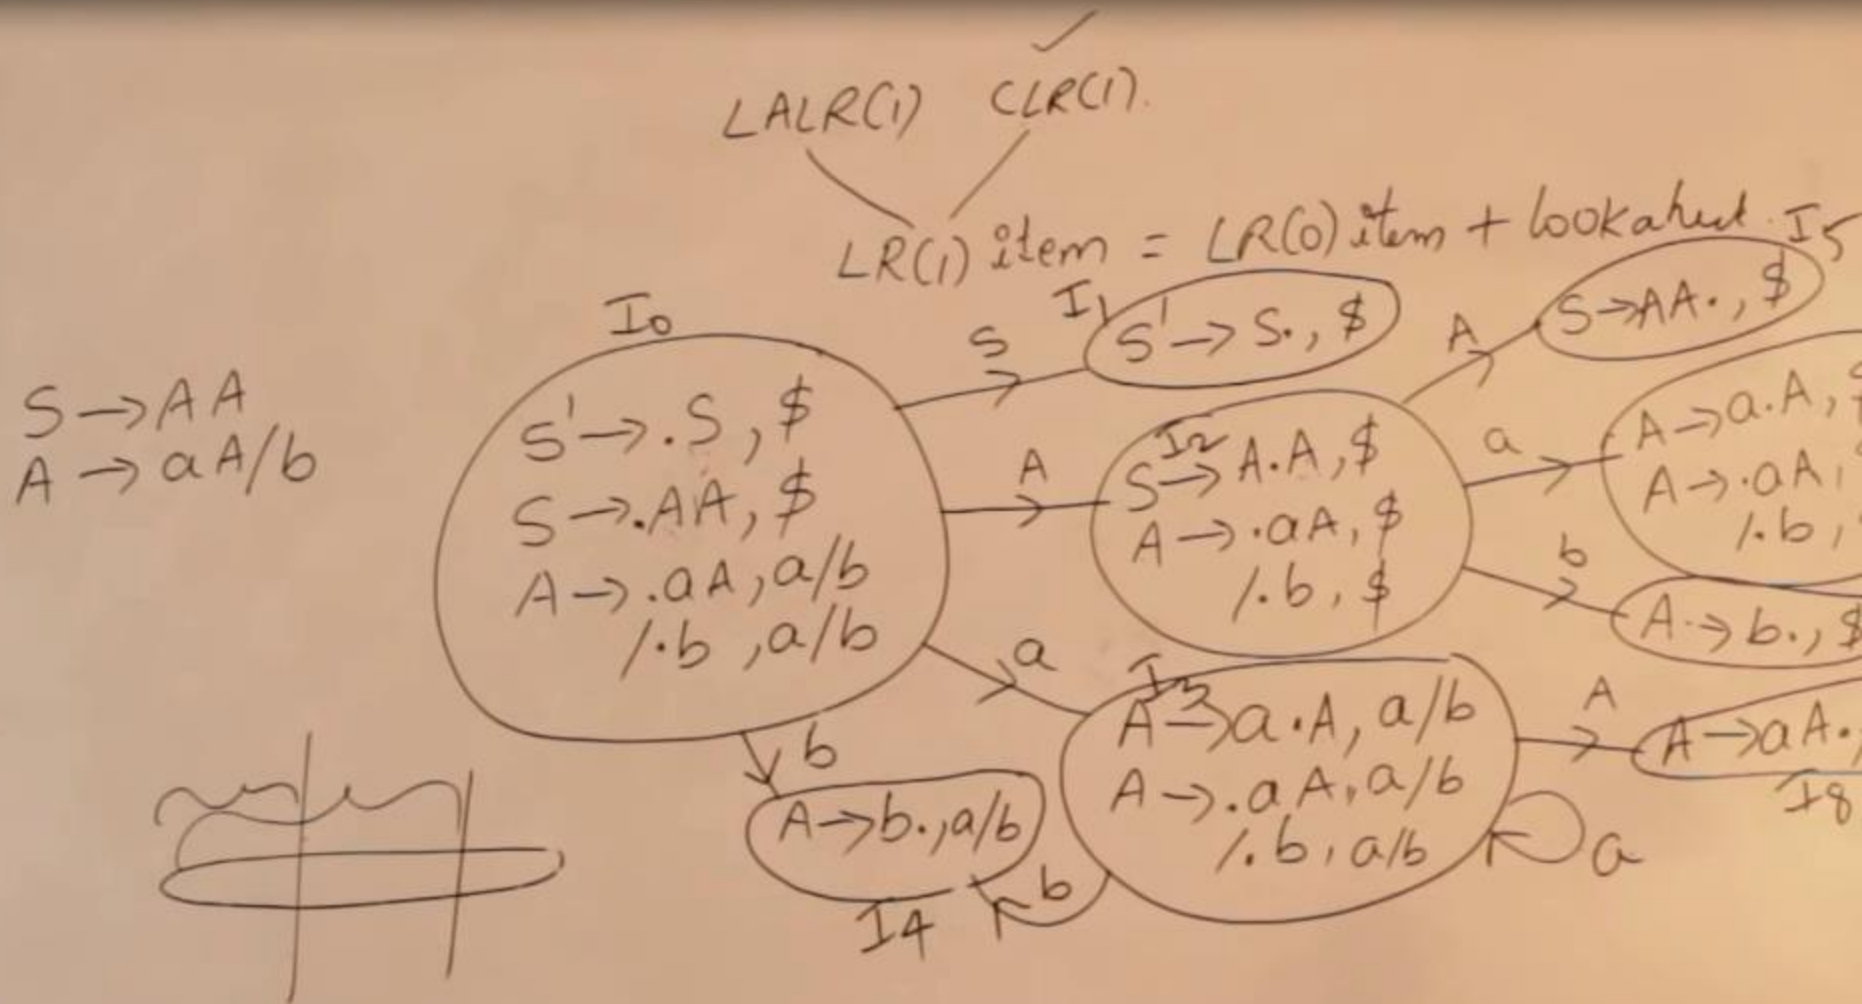 LALR(1) CLR(1).
LR(1) item = LR(0) item + lookahead.
S → AA
A → aA/b
I0
S' → .S, $
S → .AA, $
A → .aA, a/b
/.b, a/b
S
I1
S' → S., $
A
I2
S → A.A, $
A → .aA, $
/.b, $
A
I5
S → AA., $
a
A → a.A, $
A → .aA,
/.b,
b
A → b., $
a
I3
A → a.A, a/b
A → .aA, a/b
/.b, a/b
A
A → aA.,
I8
a
b
A → b., a/b
I4
b